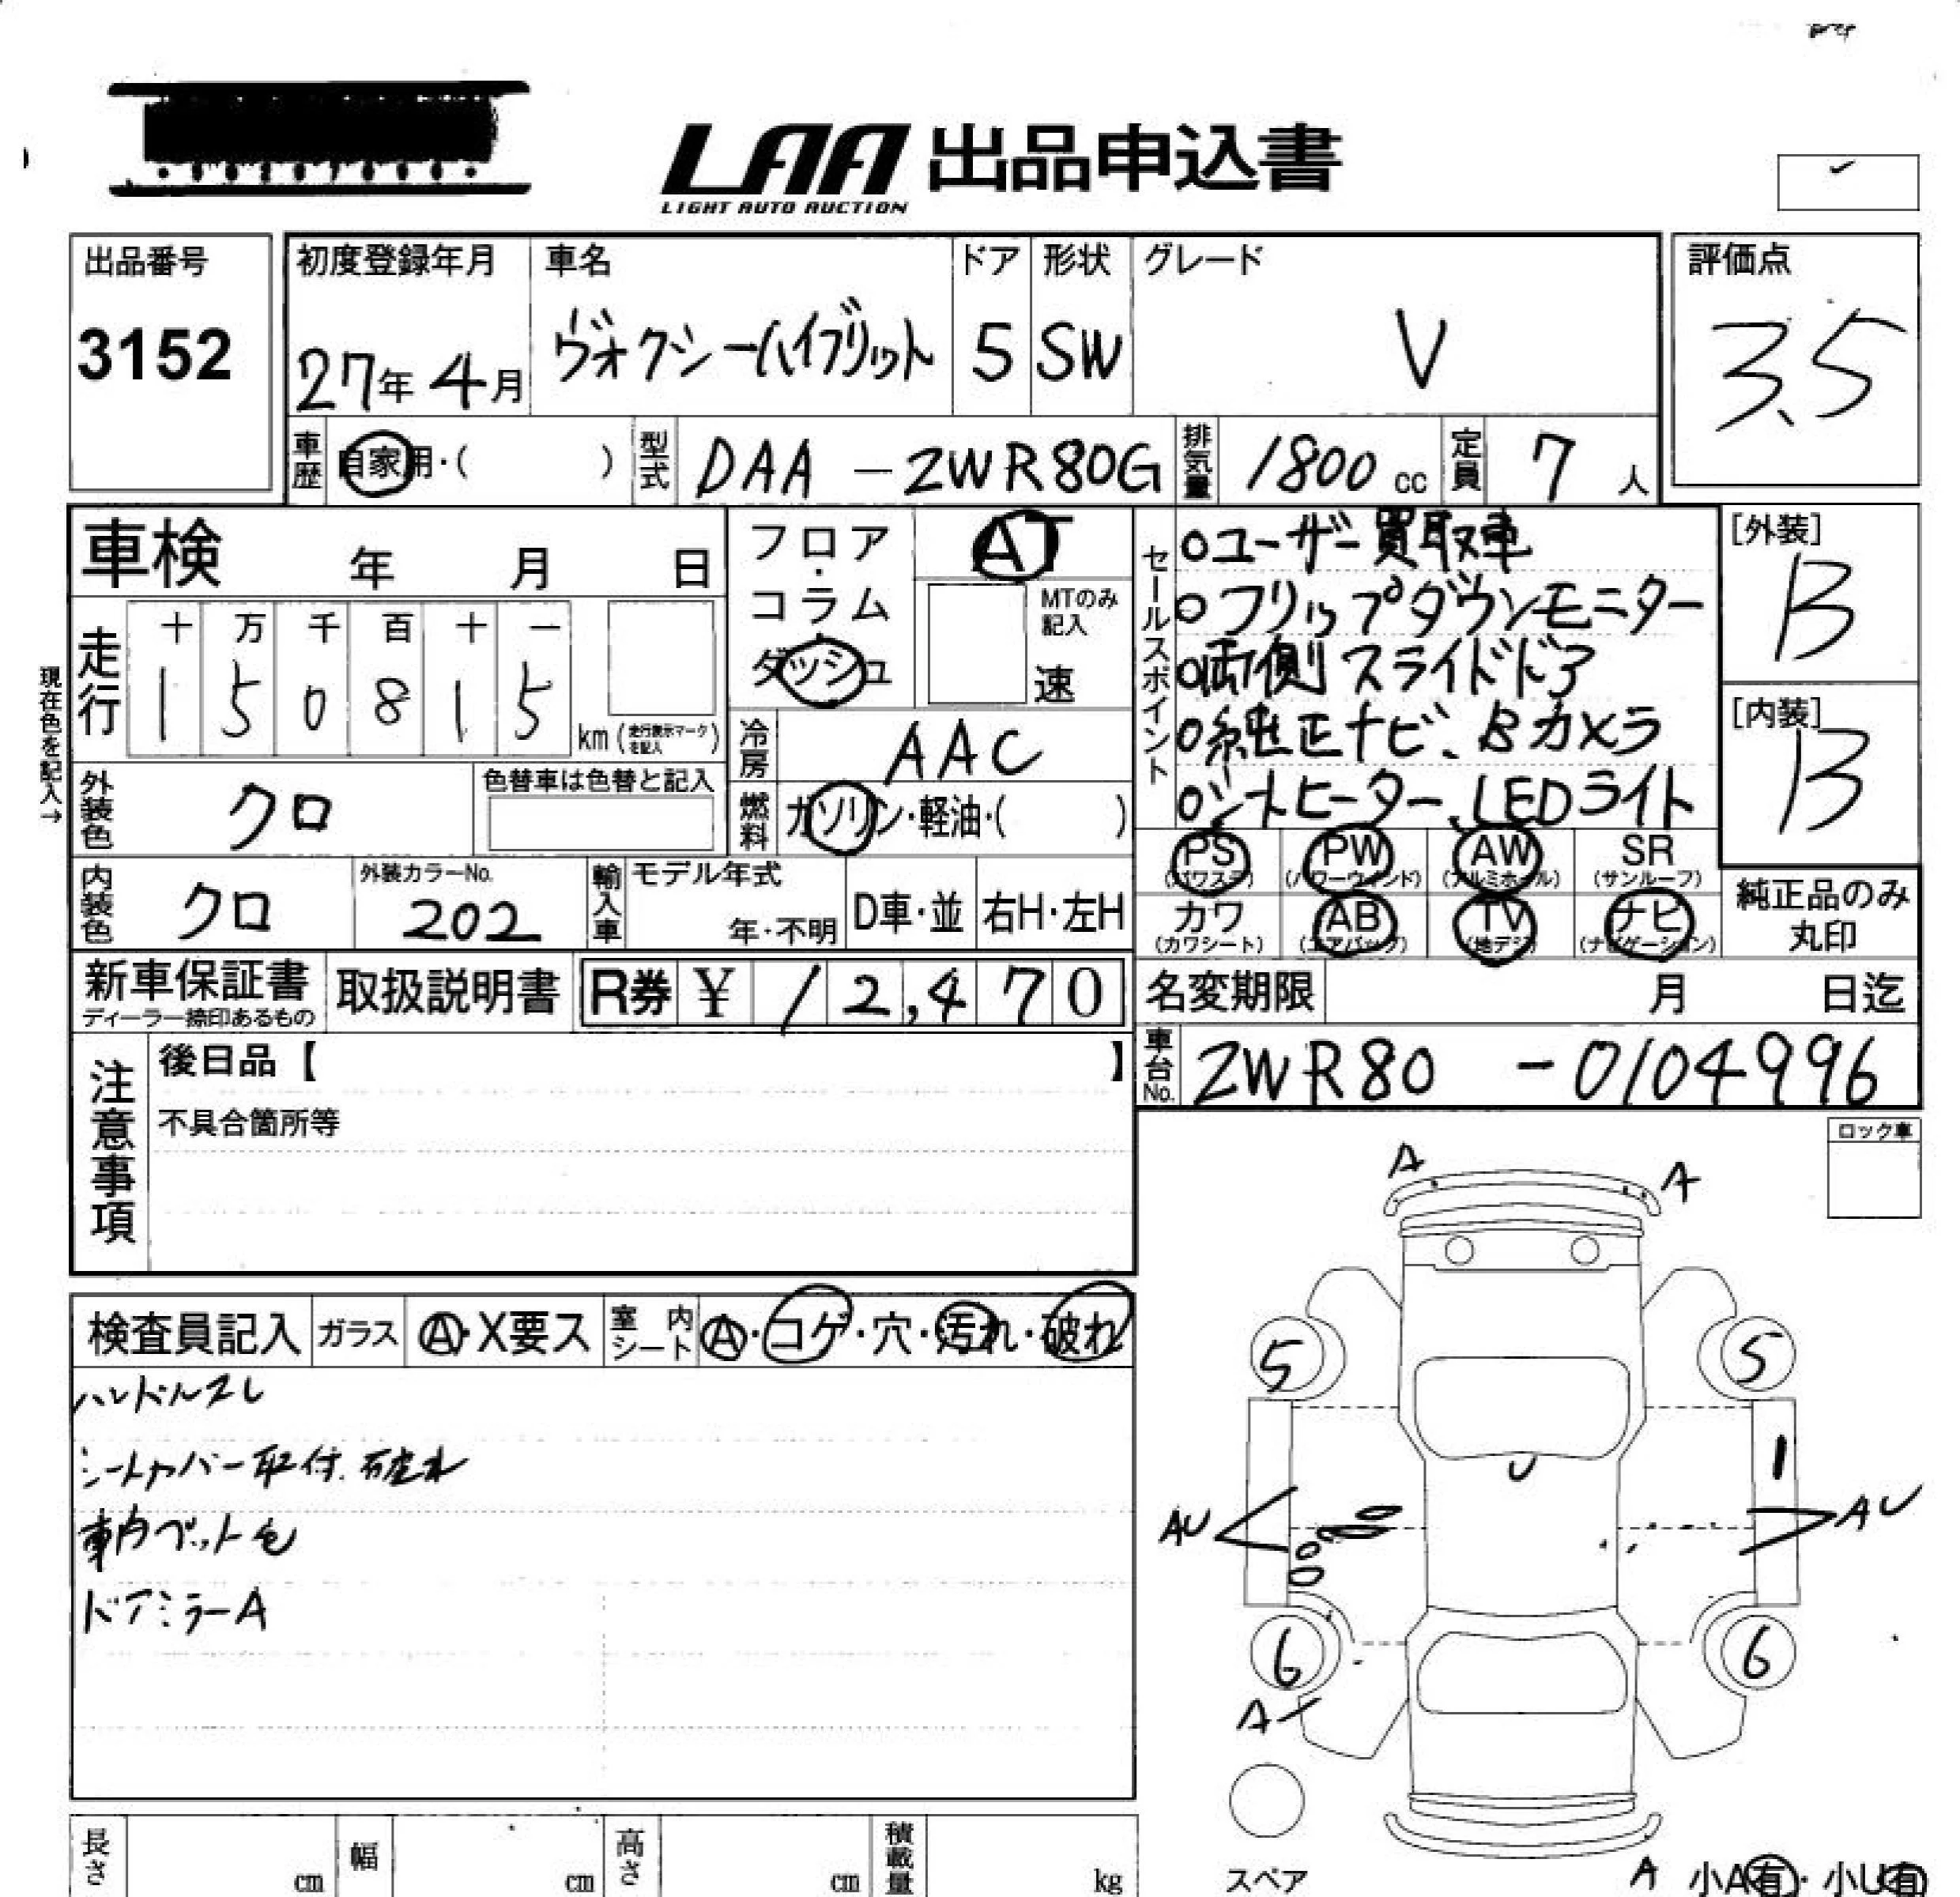 LAA 出品申込書
LIGHT AUTO AUCTION
出品番号
3152
初度登録年月
27年 4月
車名
ヴォクシーハイブリット
ドア
5
形状
SW
グレード
V
評価点
3.5
車歴 自家用・( )
型式 DAA - ZWR80G
排気量 1800 cc
定員 7 人
車検 年 月 日
フロア・コラム・ダッシュ
AT
MTのみ記入
速
現在色を記入→
走行
十 万 千 百 十 一
1 5 0 8 1 5
km (走行表示マークを記入)
冷房 AAC
外装色 クロ
色替車は色替と記入
燃料 ガソリン・軽油・( )
内装色 クロ
外装カラーNo.
202
輸入車
モデル年式
年・不明
D車・並
右H・左H
セールスポイント
○ユーザー買取車
○フリップダウンモニター
○両側スライドドア
○純正ナビ、Bカメラ
○シートヒーター、LEDライト
[外装]
B
[内装]
B
PS
(パワステ)
PW
(パワーウインド)
AW
(アルミホイール)
SR
(サンルーフ)
カワ
(カワシート)
AB
(エアバック)
TV
(地デジ)
ナビ
(ナビゲーション)
純正品のみ
丸印
新車保証書
ディーラー捺印あるもの
取扱説明書
R券 ¥ 12,470
名変期限 月 日迄
車台No. ZWR80 - 0104996
注意事項
後日品【 】
不具合箇所等
ロック車
検査員記入
ガラス
A・X要ス
室内シート
A・コゲ・穴・汚れ・破れ
ハンドルスレ
シートカバー取付.破れ
ドアミラーA
A
A
5
5
U
1
AU
AU
6
6
A
スペア
A 小A有・小U有
長さ cm
幅 cm
高さ cm
積載量 kg